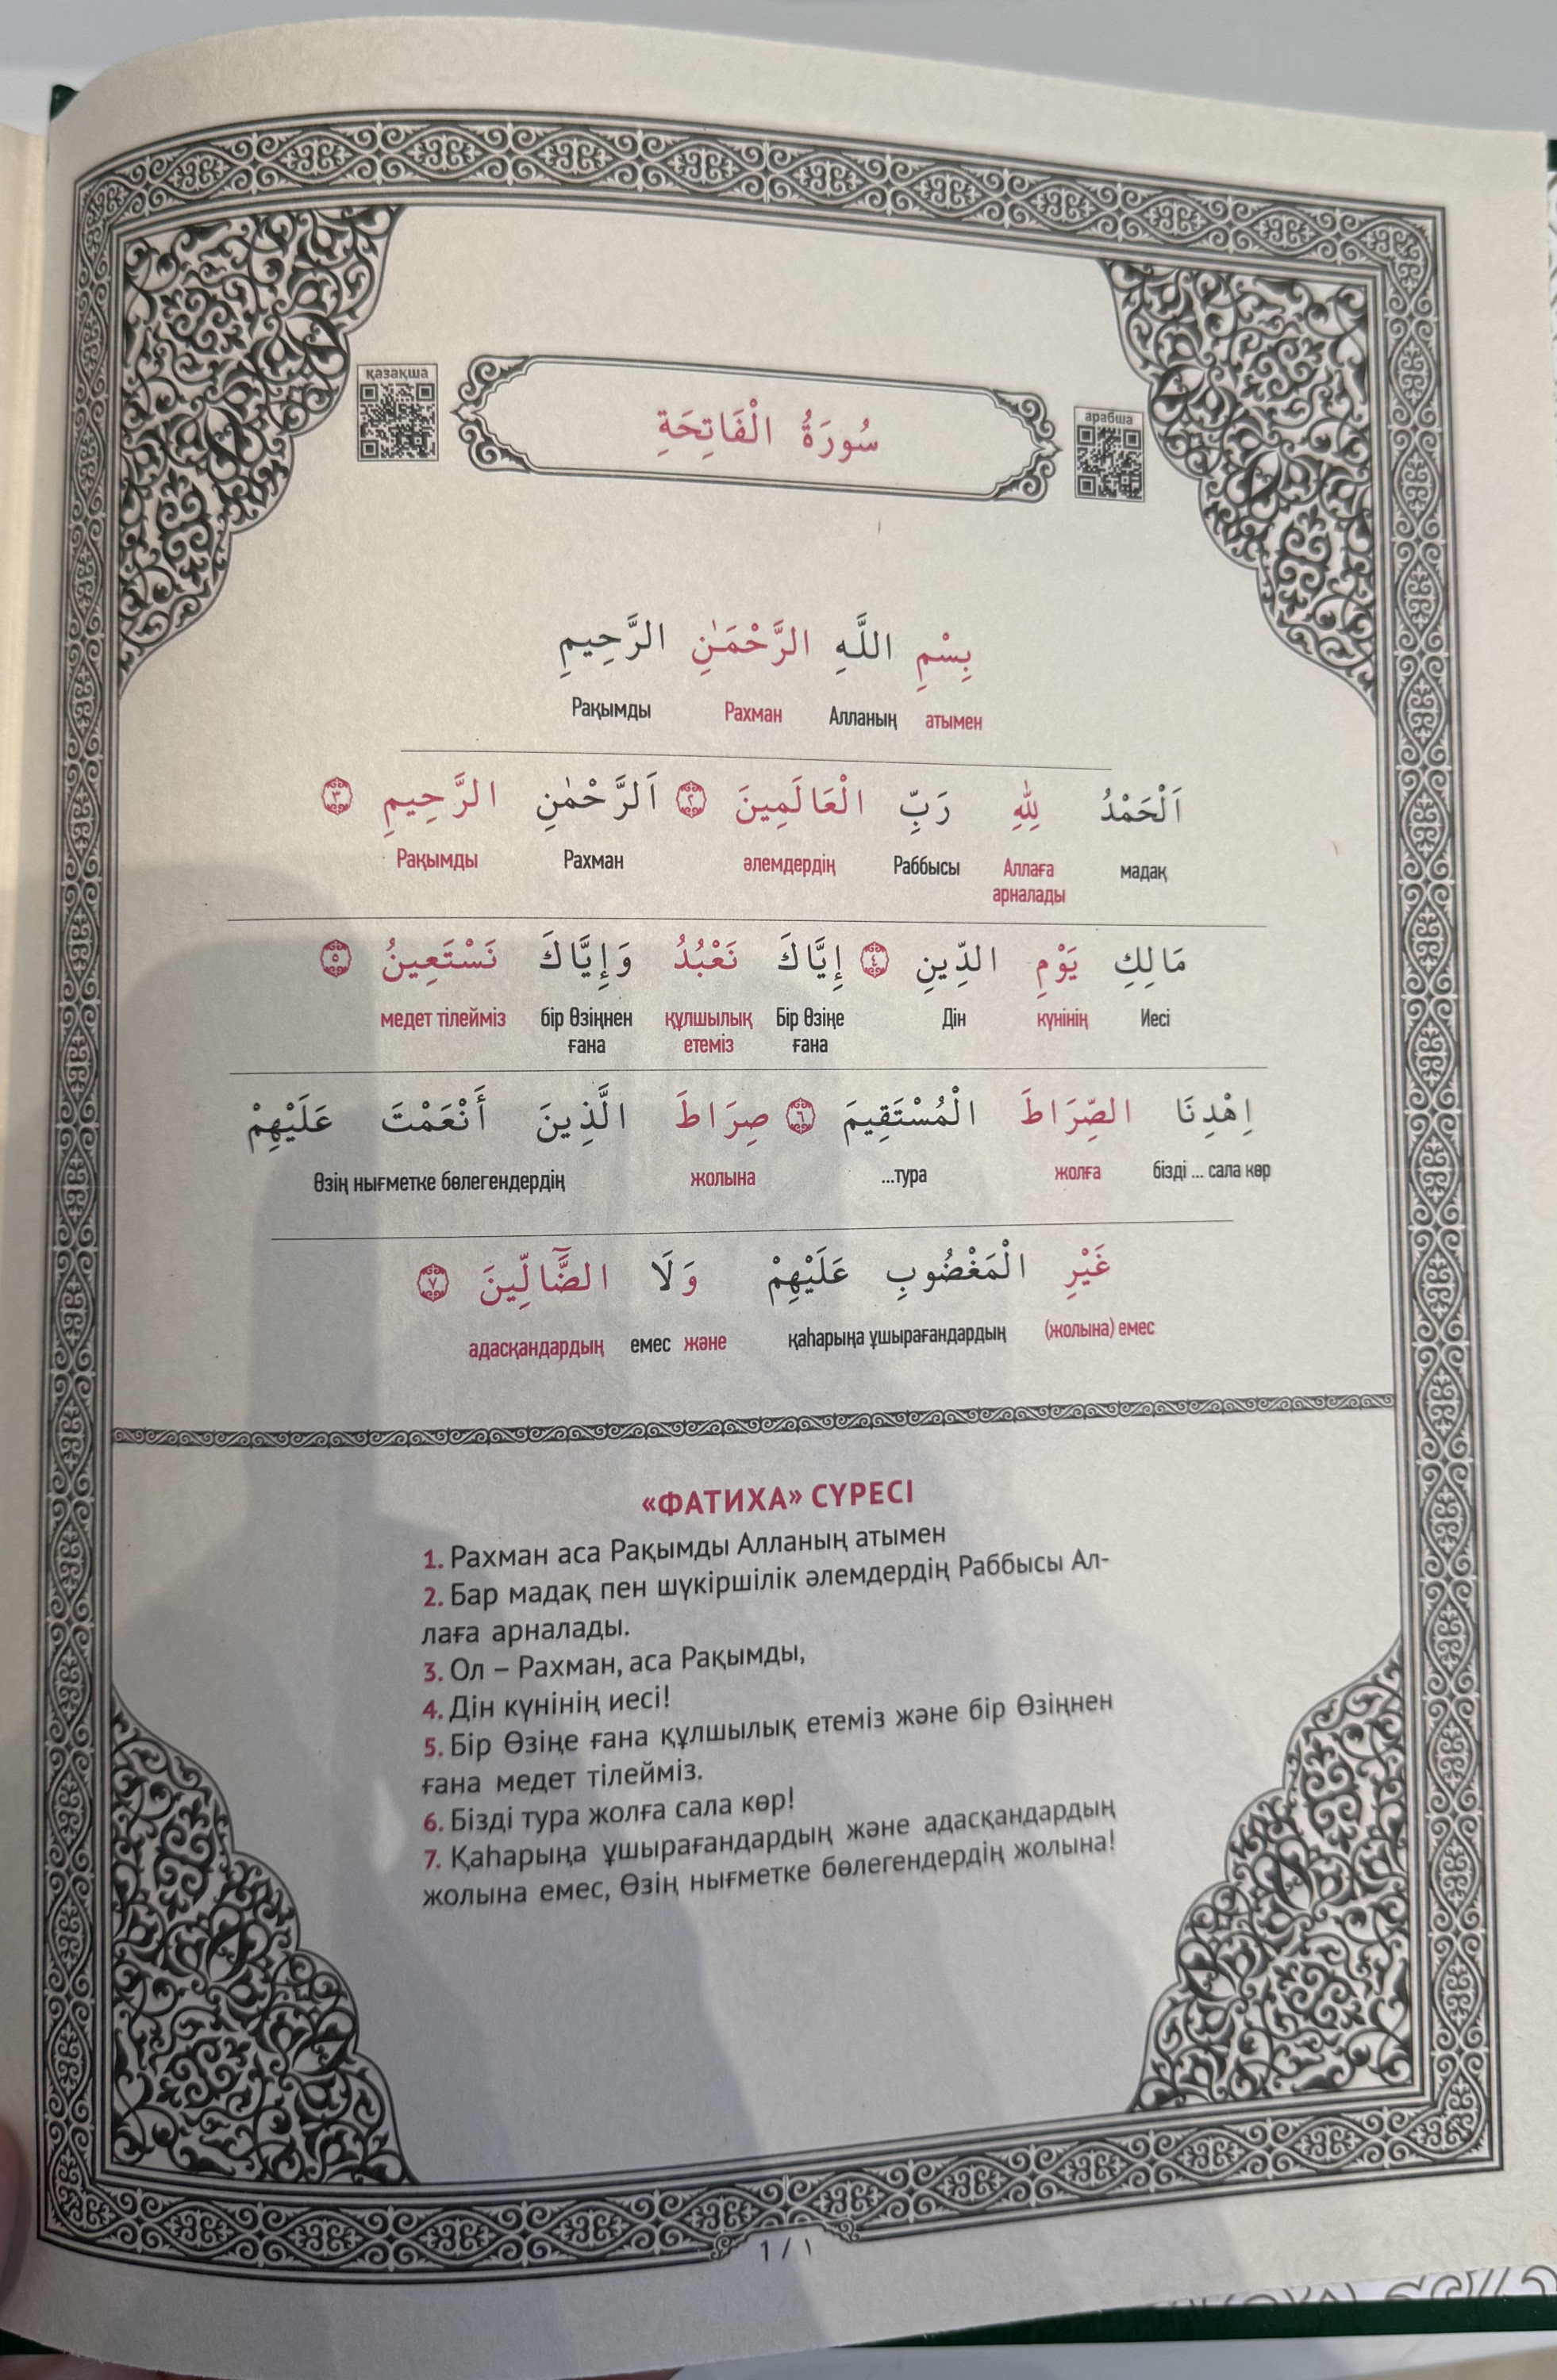 қазақша
سُورَةُ الْفَاتِحَةِ
арабша
بِسْمِ اللَّهِ الرَّحْمَـٰنِ الرَّحِيمِ
Рақымды Рахман Алланың атымен
اَلْحَمْدُ لِلّٰهِ رَبِّ الْعَالَمِينَ ٢ اَلرَّحْمٰنِ الرَّحِيمِ ٣
Рақымды Рахман әлемдердің Раббысы Аллаға мадақ
арналады
مَالِكِ يَوْمِ الدِّينِ ٤ إِيَّاكَ نَعْبُدُ وَإِيَّاكَ نَسْتَعِينُ ٥
медет тілейміз бір Өзіңнен құлшылық Бір Өзіңе Дін күнінің Иесі
ғана етеміз ғана
اِهْدِنَا الصِّرَاطَ الْمُسْتَقِيمَ ٦ صِرَاطَ الَّذِينَ أَنْعَمْتَ عَلَيْهِمْ
Өзің нығметке бөлегендердің жолына ...тура жолға бізді ... сала көр
غَيْرِ الْمَغْضُوبِ عَلَيْهِمْ وَلَا الضَّٓالِّينَ ٧
адасқандардың емес және қаһарыңа ұшырағандардың (жолына) емес
«ФАТИХА» СҮРЕСІ
1. Рахман аса Рақымды Алланың атымен
2. Бар мадақ пен шүкіршілік әлемдердің Раббысы Ал-
лаға арналады.
3. Ол – Рахман, аса Рақымды,
4. Дін күнінің иесі!
5. Бір Өзіңе ғана құлшылық етеміз және бір Өзіңнен
ғана медет тілейміз.
6. Бізді тура жолға сала көр!
7. Қаһарыңа ұшырағандардың және адасқандардың
жолына емес, Өзің нығметке бөлегендердің жолына!
1 / ١